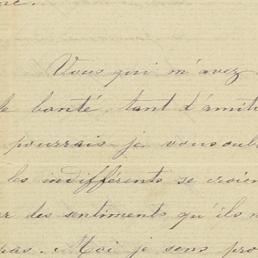 Vous qui m'avez
bonté, tant d'amiti
pourrais je vous oub
les indifférents se croien
des sentiments qu'ils n
pas. Moi je sens pro